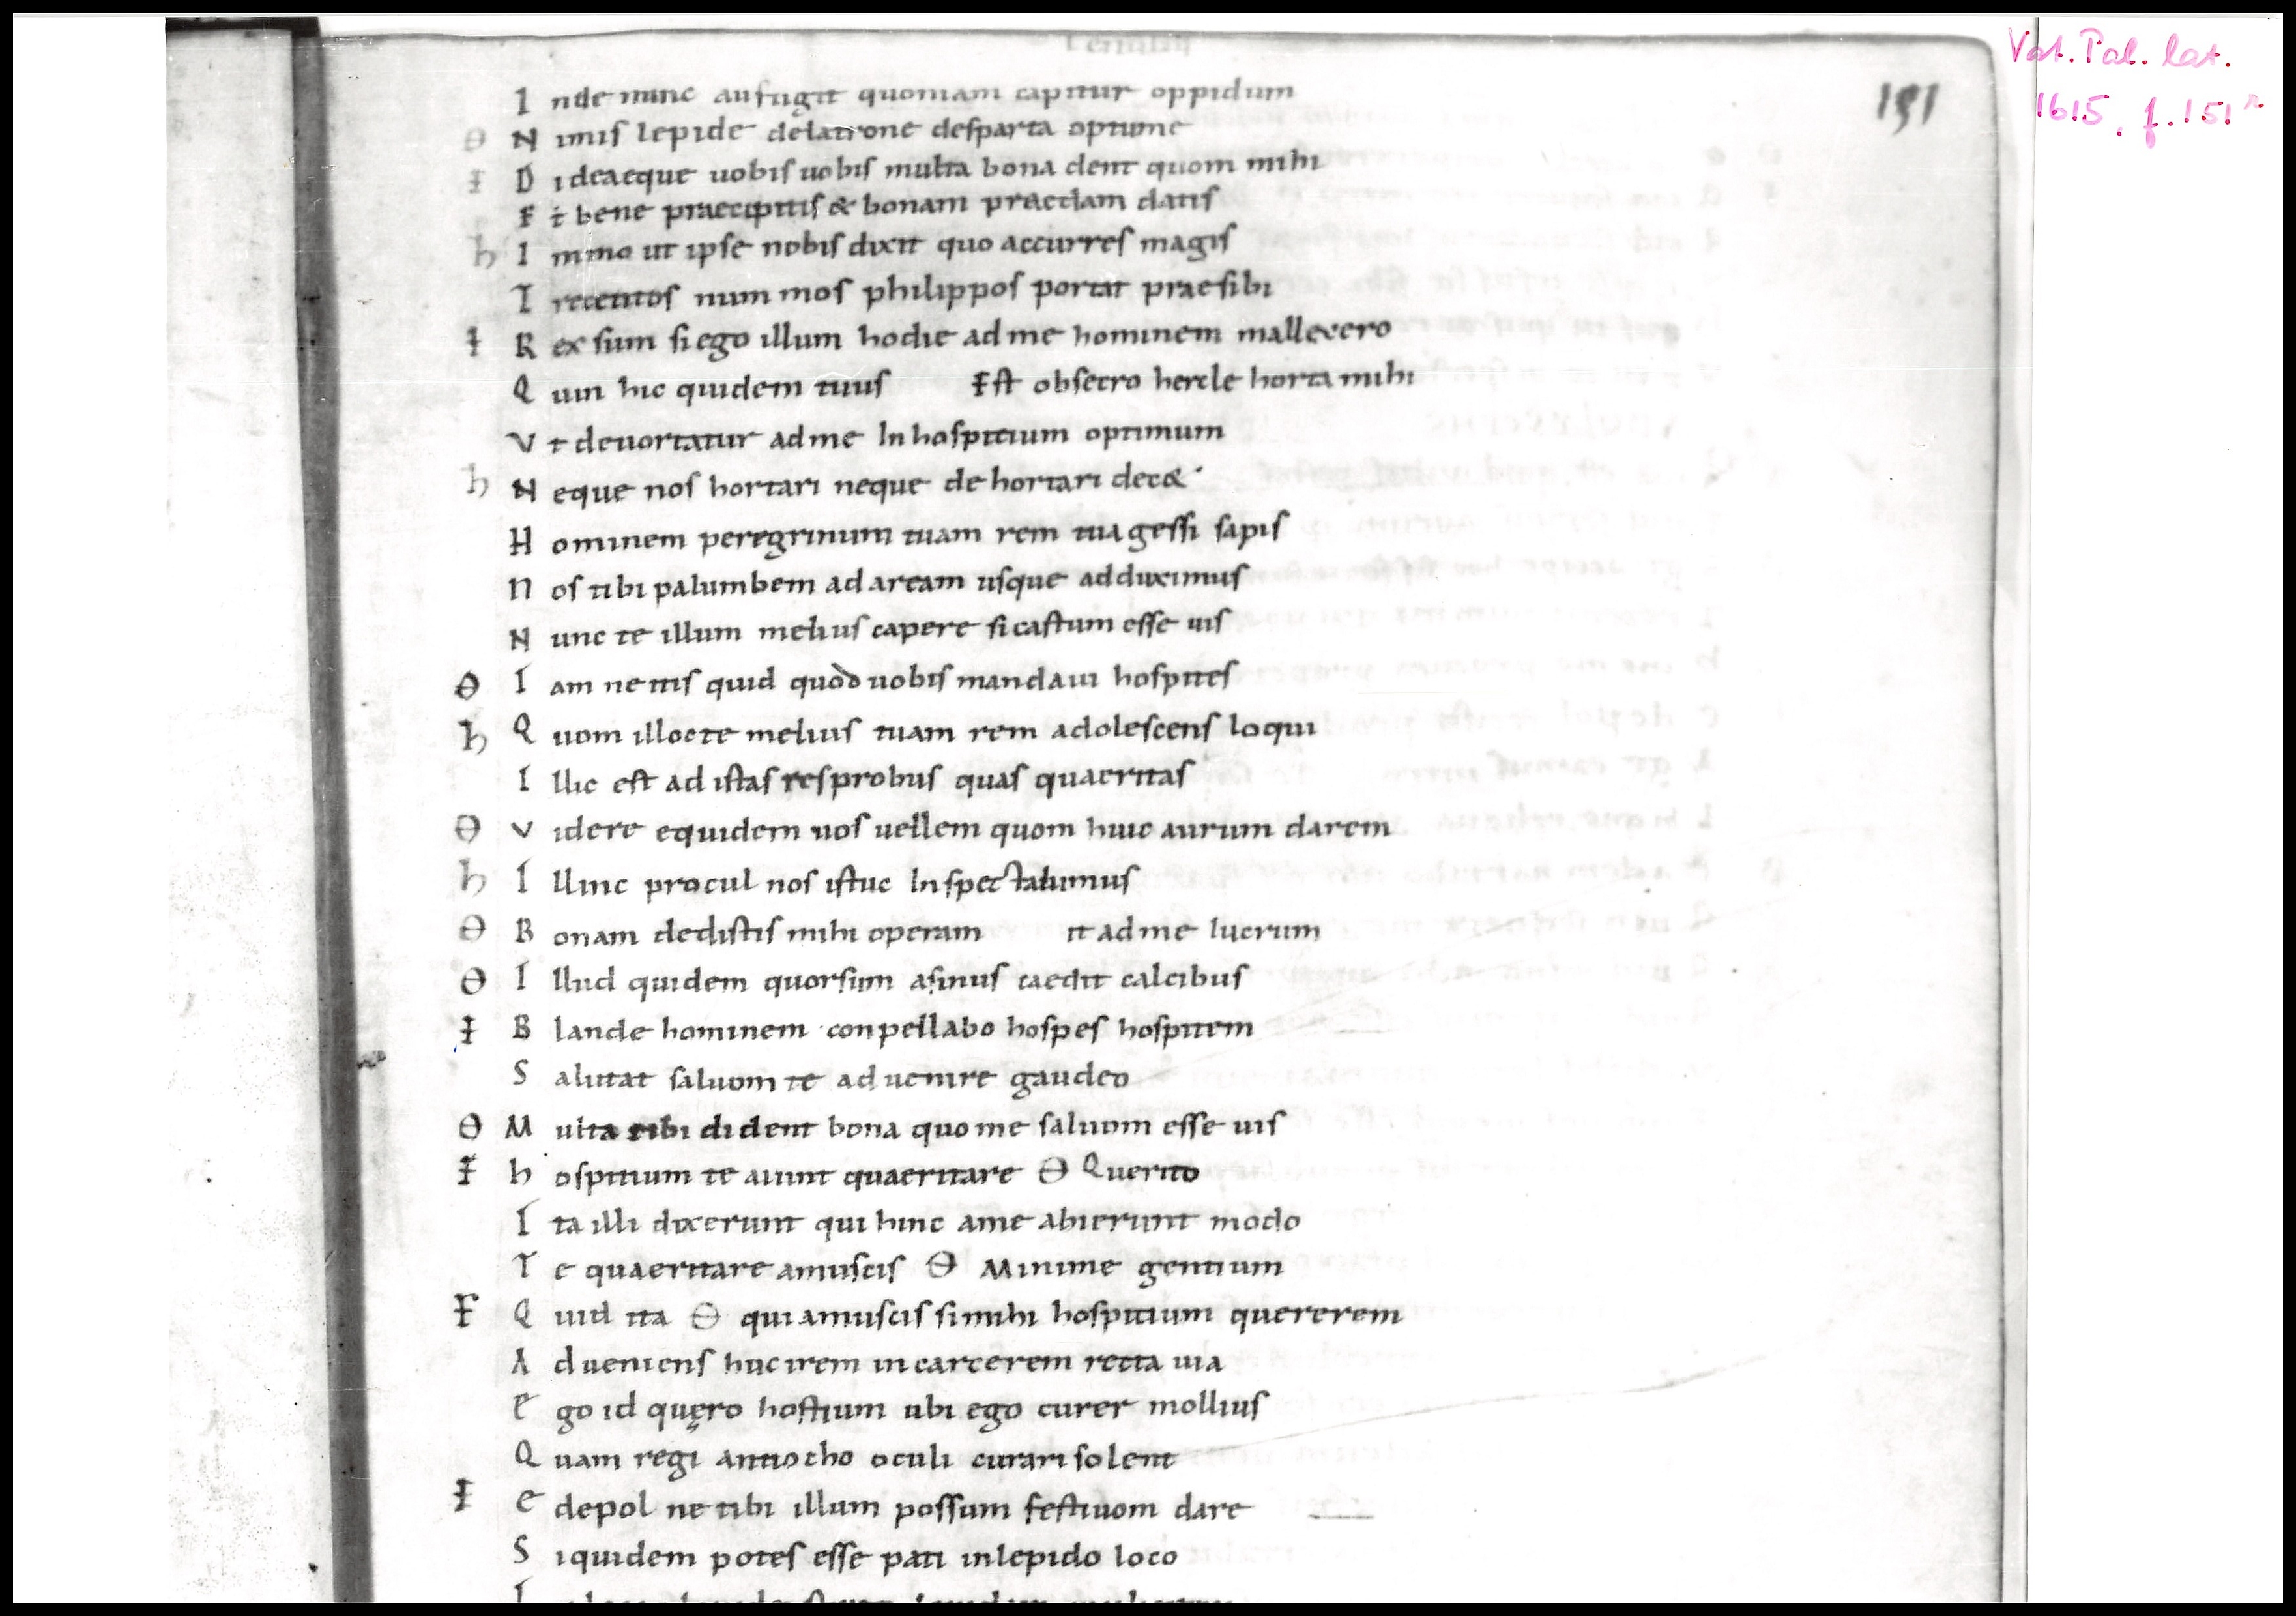 Vat. Pal. lat.
1615, f. 151r
151
I nde nunc aufugit quoniam capitur oppidum
Θ N imis lepide delatrone desparta optume
I D ideaeque uobis uobis multa bona dent quom mihi
E t bene praecipitis & bonam praedam datis
h I mmo ut ipse nobis dixit quo accurres magis
T recentos num mos philippos portat praesibi
I R ex sum siego illum hodie ad me hominem mallexero
Q uin hic quidem tuus Est obsecro hercle horta mihi
V t deuortatur adme In hospitium optimum
h N eque nos hortari neque de hortari dec&
H ominem peregrinum tuam rem tua gessi sapis
N os tibi palumbem ad aream usque adduximus
N unc te illum melius capere si castum esse uis
Θ I am ne itis quid quod uobis mandaui hospites
h Q uom illocte melius tuam rem adolescens loqui
I llic est ad istas res probus quas quaeritas
Θ V idere equidem uos uellem quom huic aurum darem
h I llinc procul nos istuc Inspectabimus
Θ B onam dedistis mihi operam it adme lucrum
Θ I llud quidem quorsum asinus caedit calcibus
I B lande hominem conpellabo hospes hospitem
S alutat saluom te ad uenire gaudeo
Θ M ulta tibi di dent bona quo me saluom esse uis
I h ospitium te aiunt quaeritare Θ Querito
I ta illi dixerunt qui hinc ame abierunt modo
T e quaeritare amuscis Θ Minime gentium
F Q uid ita Θ qui amuscis si mihi hospitium quererem
A dueniens huc irem in carcerem recta uia
E go id quęro hostium ubi ego curer mollius
Q uam regi antiocho oculi curari solent
I E depol ne tibi illum possum festiuom dare
S iquidem potes esse pati inlepido loco